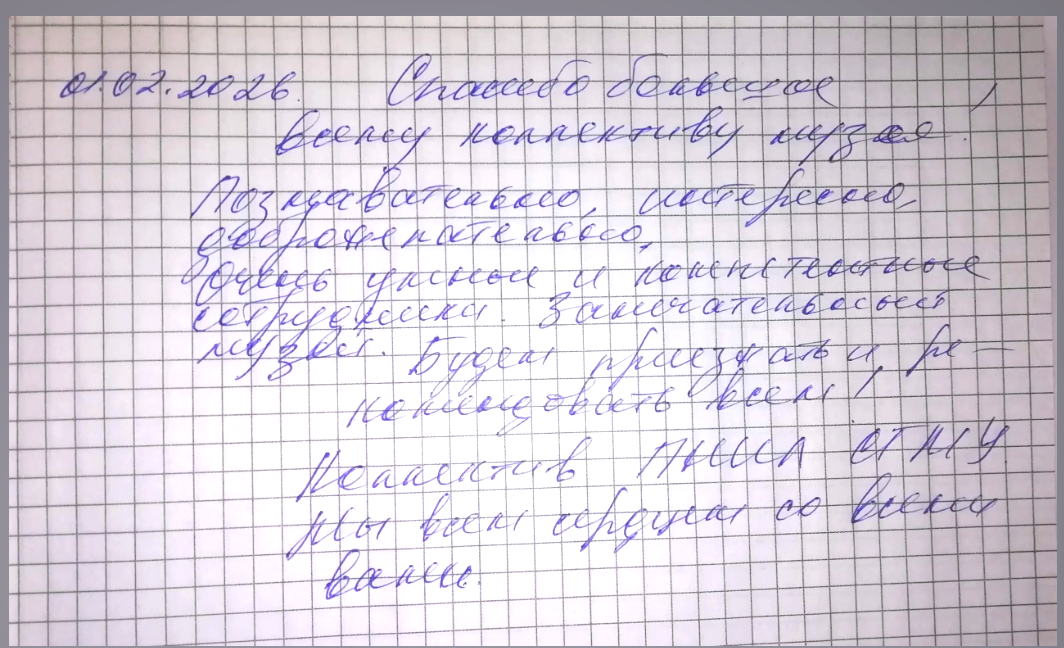 01.02.2026. Спасибо большое
всему коллективу музея!
Познавательно, интересно,
доброжелательно,
Очень умные и компетентные
сотрудники. Замечательный
музей. Будем приезжать и ре-
комендовать всем!
Коллектив ПНИЛ СГМУ
Мы всем сердцем со всеми
вами.